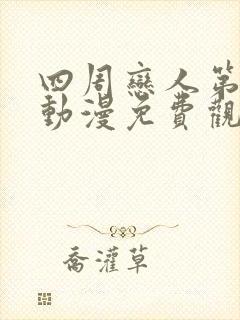 四周戀人第
動漫免費觀
喬灌草